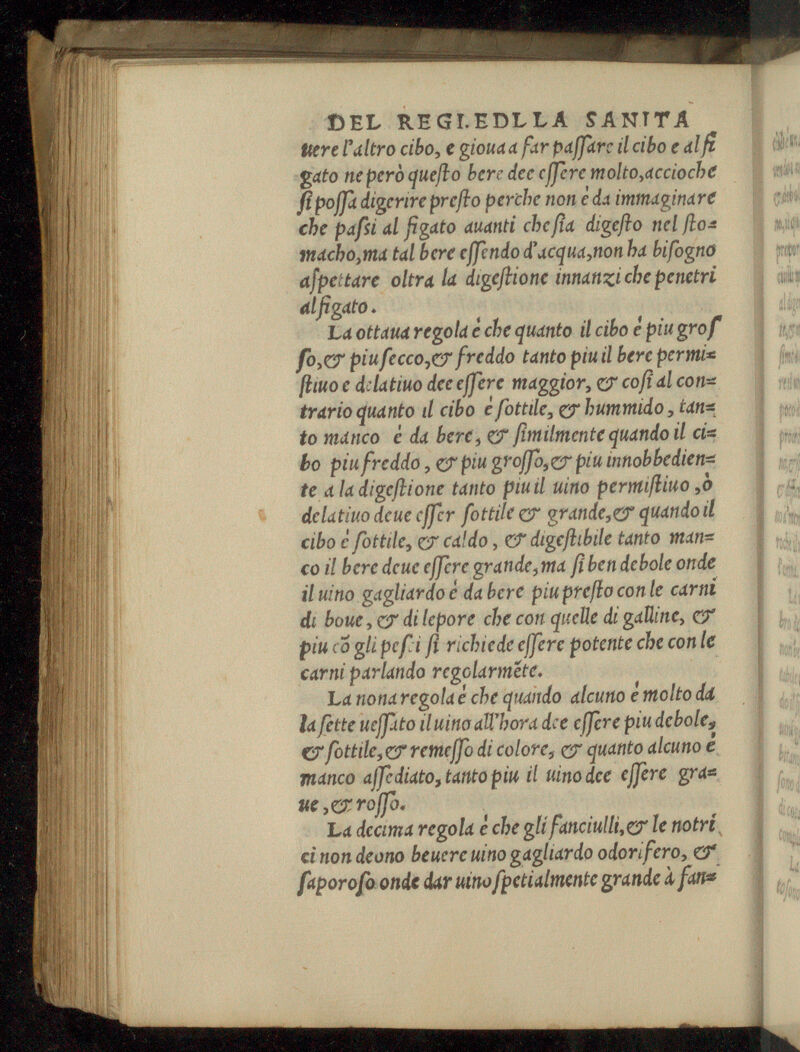 DEL REGI.EDLLA SANITA
uere l'altro cibo, e gioua a far paſſare il cibo e al fi
gato ne però queſto bere dee eſſere molto,accioche
ſi poſſa digerire preſto perche non é da immaginare
che paſsi al figato auanti che ſia digeſto nel ſto=
macho,ma tal bere eſſendo d'acqua,non ha biſogno
aſpettare oltra la digeſtione innanzi che penetri
al figato.
La ottaua regola é che quanto il cibo é piu groſ
ſo,& piu ſecco,& freddo tanto piu il bere permi=
ſtiuo e delatiuo dee eſſere maggior, & coſi al con=
trario quanto il cibo é ſottile, & hummido, tan=
to manco é da bere, & ſimilmente quando il ci=
bo piu freddo, & piu groſſo,& piu innobbedien=
te a la digeſtione tanto piu il uino permiſtiuo ,ò
delatiuo deue eſſer ſottile & grande,& quando il
cibo é ſottile, & caldo, & digeſtibile tanto man=
co il bere deue eſſere grande,ma ſi ben debole onde
il uino gagliardo é da bere piu preſto con le carni
di boue, & di lepore che con quelle di galline, &
piu cõ gli peſci ſi richiede eſſere potente che con le
carni parlando regolarmẽte.
La nona regola é che quando alcuno é molto da
la ſette ueſſato il uino all'hora dee eſſere piu debole,
& ſottile,& remeſſo di colore, & quanto alcuno é
manco aſſediato, tanto piu il uino dee eſſere gra=
ue ,& roſſo.
La decima regola é che gli fanciulli,& le notri
ci non deono beuere uino gagliardo odorifero, &
ſaporoſo onde dar uino ſpetialmente grande à fan=